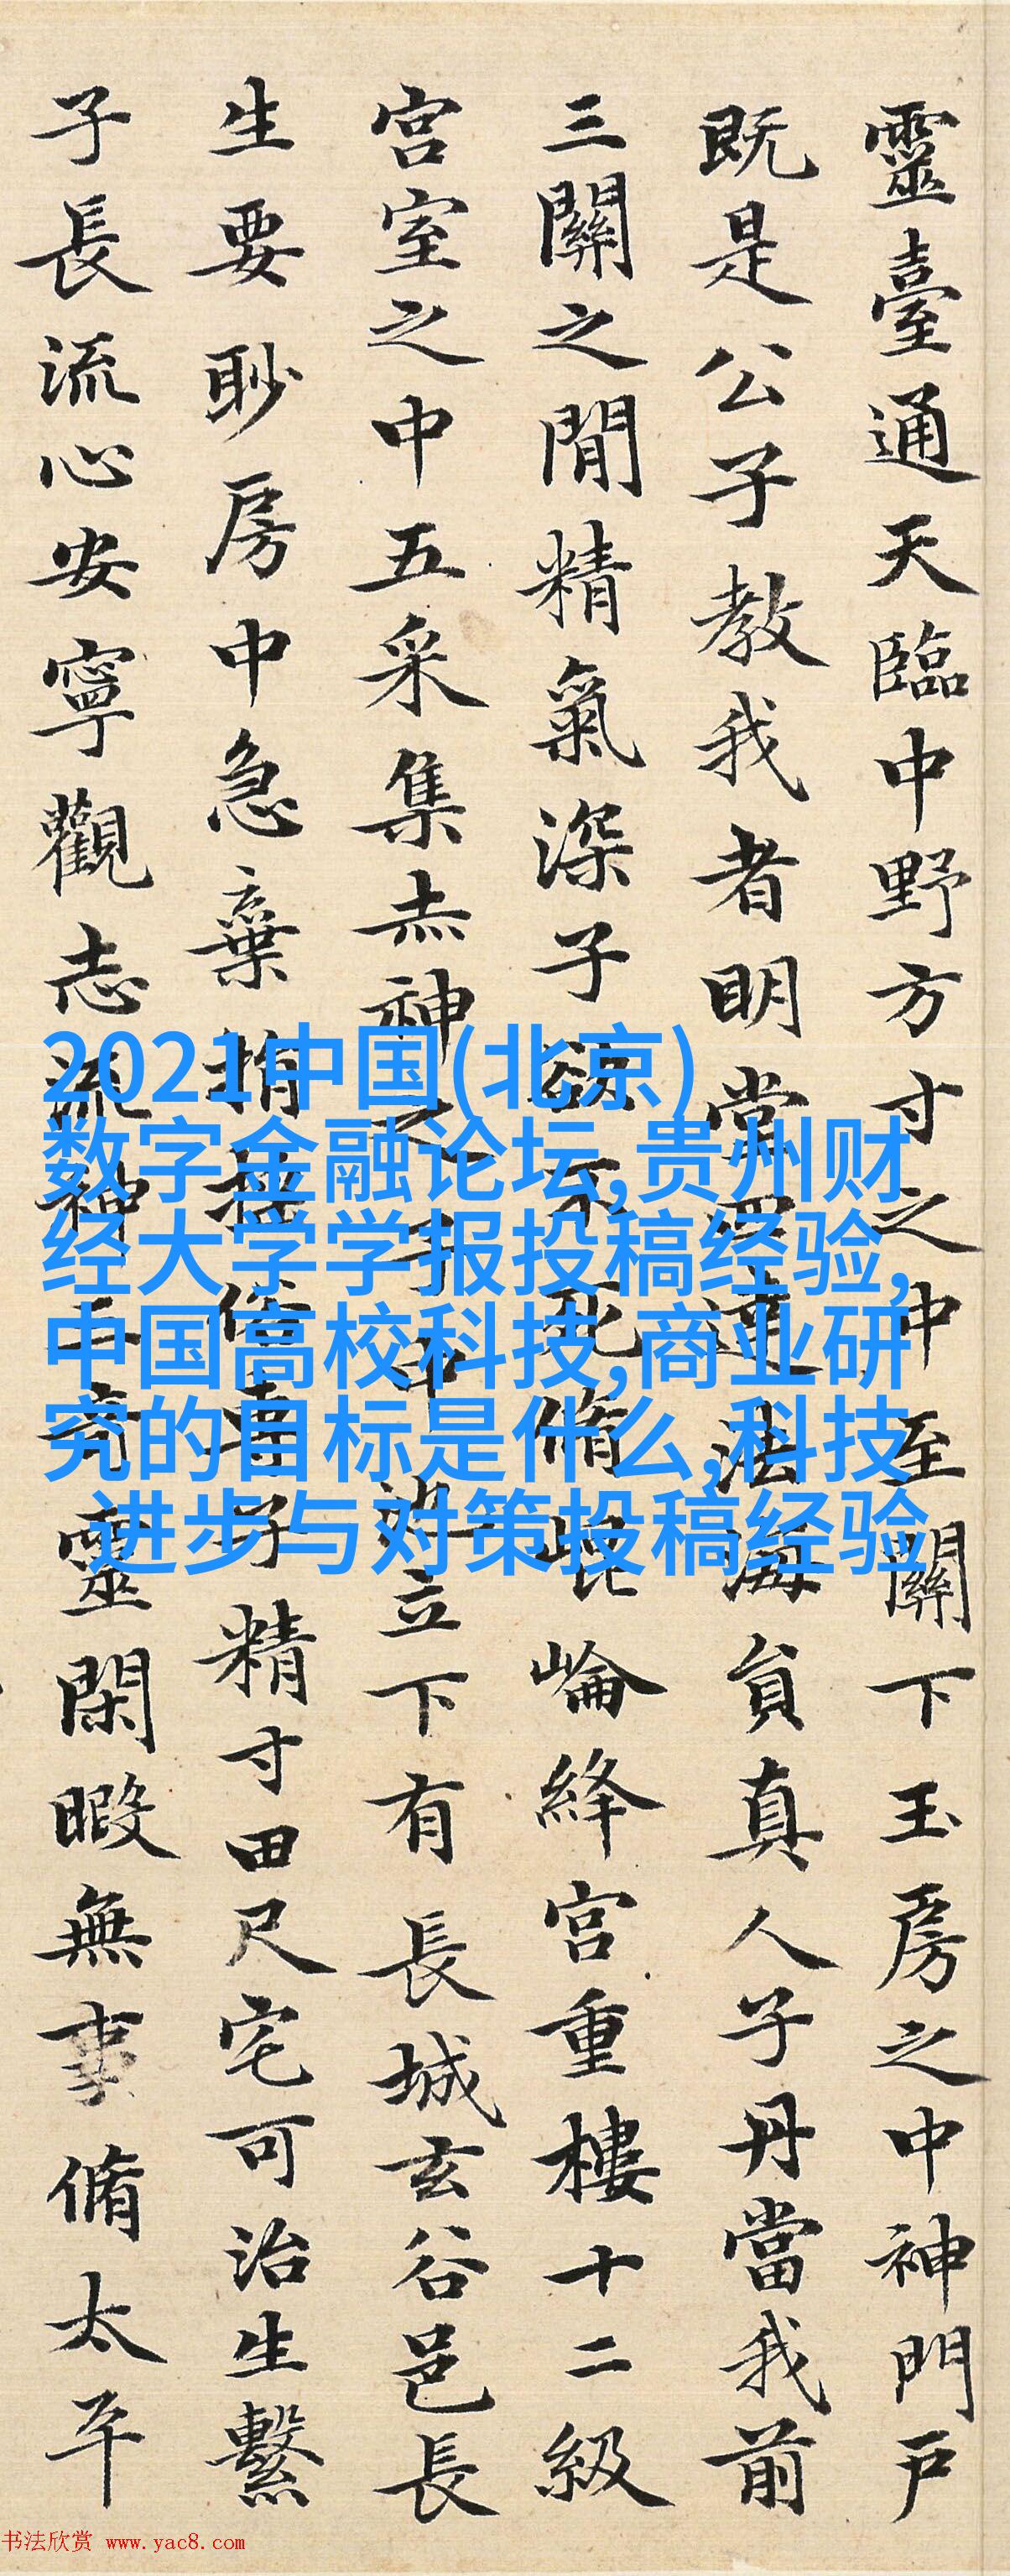 靈臺通天臨中野方寸之中至關下玉房之中神門戶
既是公子教我者明堂四達法海貟真人子丹當我前
三關之閒精氣深子欲不死脩崐崘絳宮重樓十二級
宮室之中五采集赤神之子中池立下有長城玄谷邑長
生要眇房中急棄捐搖俗專子精寸田尺宅可治生繫
子長流心安寧觀志流神三奇靈閑暇無事脩太平
2021中国(北京)
数字金融论坛,贵州财
经大学学报投稿经验,
中国高校科技,商业研
究的目标是什么,科技
进步与对策投稿经验
书法欣赏 www.yac8.com